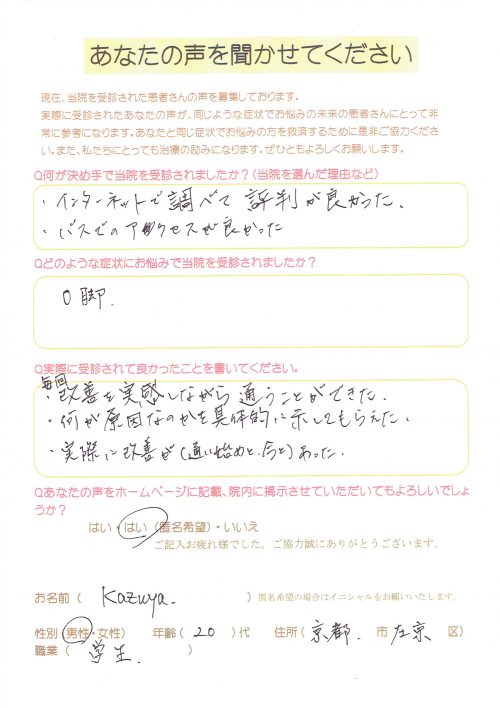 あなたの声を聞かせてください
現在、当院を受診された患者さんの声を募集しております。
実際に受診されたあなたの声が、同じような症状でお悩みの未来の患者さんにとって非
常に参考になります。あなたと同じ症状でお悩みの方を救済するために是非ご協力くださ
い。また、私たちにとっても治療の励みになります。ぜひともよろしくお願いします。
Q何が決め手で当院を受診されましたか?(当院を選んだ理由など)
・インターネットで調べて 評判が良かった.
・バスでのアクセスが良かった
Qどのような症状にお悩みで当院を受診されましたか?
O脚.
Q実際に受診されて良かったことを書いてください。
毎回
・改善を実感しながら通うことができた.
・何が原因なのかを具体的に示してもらえた.
・実際に改善が(通い始めと、今と)あった.
Qあなたの声をホームページに記載、院内に掲示させていただいてもよろしいでしょ
うか?
はい・はい(匿名希望)・いいえ
ご記入お疲れ様でした。ご協力誠にありがとうございます。
お名前( Kazuya. )匿名希望の場合はイニシャルをお願いいたします。
性別(男性・女性) 年齢( 20 )代 住所( 京都. 市 左京 区)
職業( 学生. )